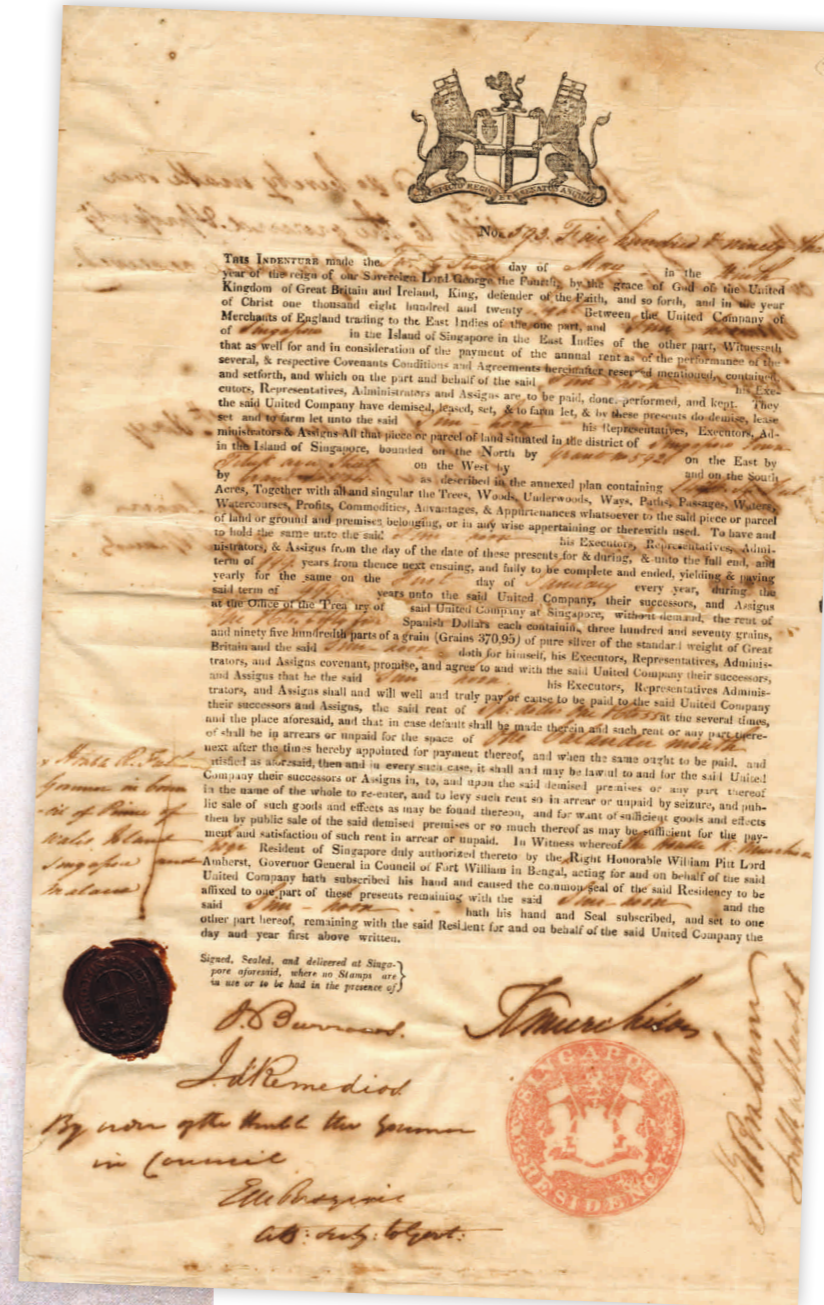 No. 593. Five hundred & ninety
THIS INDENTURE made the day of May in the
year of the reign of our Sovereign Lord George the Fourth, by the grace of God of the United
Kingdom of Great Britain and Ireland, King, defender of the Faith, and so forth, and in the year
of Christ one thousand eight hundred and twenty Between the United Company of
Merchants of England trading to the East Indies of the one part, and
of Singapore in the Island of Singapore in the East Indies of the other part, Witnesseth
that as well for and in consideration of the payment of the annual rent as of the performance of the
several, & respective Covenants Conditions and Agreements hereinafter reserved mentioned, contained
and setforth, and which on the part and behalf of the said Sim - hoon his Exe-
cutors, Representatives, Administrators and Assigns are to be paid, done, performed, and kept. They
the said United Company have demised, leased, set, & to farm let, & by these presents do demise, lease
set and to farm let unto the said Sim hoon his Representatives, Executors, Ad-
ministrators & Assigns All that piece or parcel of land situated in the district of Singapore Town
in the Island of Singapore, bounded on the North by Grant No 592 on the East by
on the West by and on the South
by as described in the annexed plan containing
Acres, Together with all and singular the Trees, Woods, Underwoods, Ways, Paths, Passages, Waters,
Watercourses, Profits, Commodities, Advantages, & Appurtenances whatsoever to the said piece or parcel
of land or ground and premises belonging, or in any wise appertaining or therewith used. To have and
to hold the same unto the said Sim hoon his Executors, Representatives, Admi-
nistrators, & Assigns from the day of the date of these presents for & during, & unto the full end, and
term of 999 years from thence next ensuing, and fully to be complete and ended, yielding & paying
yearly for the same on the First day of January every year, during the
said term of 999 years unto the said United Company, their successors, and Assigns
at the Office of the Treasury of said United Company at Singapore, without demand, the rent of
Spanish Dollars each containing three hundred and seventy grains,
and ninety five hundredth parts of a grain (Grains 370,95) of pure silver of the standard weight of Great
Britain and the said Sim - hoon doth for himself, his Executors, Representatives, Adminis-
trators, and Assigns covenant, promise, and agree to and with the said United Company their successors,
and Assigns that he the said Sim hoon his Executors, Representatives Adminis-
trators, and Assigns shall and will well and truly pay or cause to be paid to the said United Company
their successors and Assigns, the said rent of at the several times,
and the place aforesaid, and that in case default shall be made therein and such rent or any part there-
of shall be in arrears or unpaid for the space of One Calander month
next after the times hereby appointed for payment thereof, and when the same ought to be paid, and
as aforesaid, then and in every such case, it shall and may be lawful to and for the said United
Company their successors or Assigns in, to, and upon the said demised premises or any part thereof
in the name of the whole to re-enter, and to levy such rent so in arrear or unpaid by seizure, and pub-
lic sale of such goods and effects as may be found thereon, and for want of sufficient goods and effects
then by public sale of the said demised premises or so much thereof as may be sufficient for the pay-
ment and satisfaction of such rent in arrear or unpaid. In Witness whereof the Honble K. Murchison
Esqr Resident of Singapore duly authorized thereto by the Right Honorable William Pitt Lord
Amherst, Governor General in Council of Fort William in Bengal, acting for and on behalf of the said
United Company hath subscribed his hand and caused the common seal of the said Residency to be
affixed to one part of these presents remaining with the said Sim - hoon and the
said Sim - hoon hath his hand and Seal subscribed, and set to one
other part hereof, remaining with the said Resident for and on behalf of the said United Company the
day and year first above written.
Honble R.
Governor in Coun
cil of Prince of
Wales Island
Singapore and
Malacca
Signed, Sealed, and delivered at Singa-
pore aforesaid, where no Stamps are
in use or to be had in the presence of
K Murchison
By order of the Honble the Governor
in Council
SINGAPORE
RESIDENCY